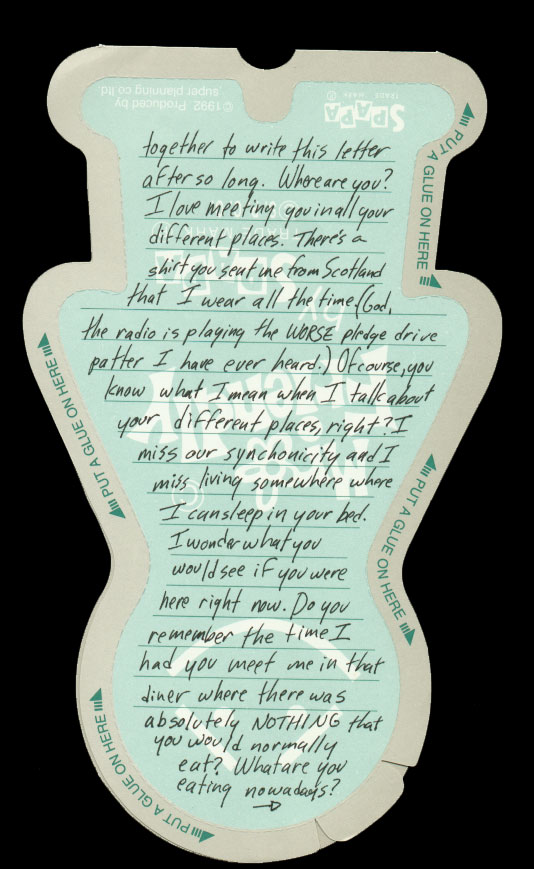 ©1992 Produced by
,super planning co ltd
SPAPA
TRADE MARK ®
together to write this letter
after so long. Where are you?
I love meeting you in all your
different places. There's a
shirt you sent me from Scotland
that I wear all the time. (God,
the radio is playing the WORSE pledge drive
patter I have ever heard.) Of course, you
know what I mean when I talk about
your different places, right? I
miss our synchonicity and I
miss living somewhere where
I can sleep in your bed.
I wonder what you
would see if you were
here right now. Do you
remember the time I
had you meet me in that
diner where there was
absolutely NOTHING that
you would normally
eat? What are you
eating nowadays?
→
PUT A GLUE ON HERE
PUT A GLUE ON HERE
PUT A GLUE ON HERE
PUT A GLUE ON HERE